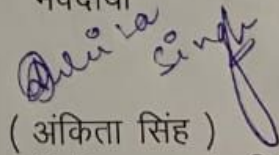 भवदीया
Ankita Singh
( अंकिता सिंह )